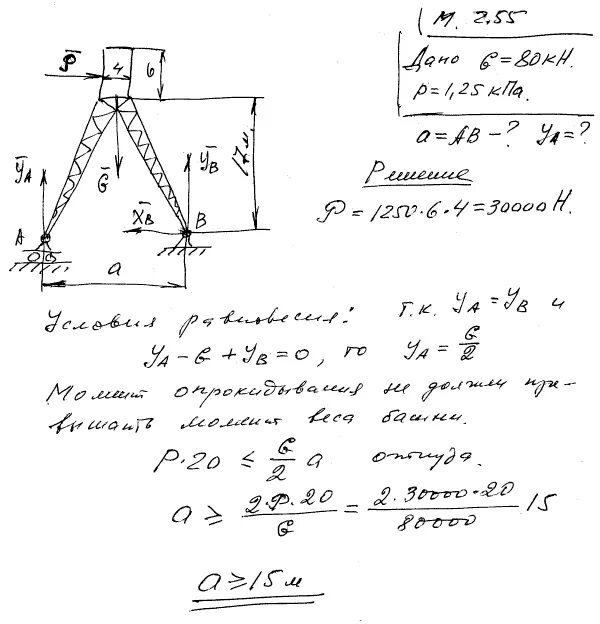 М. 2.55
Дано G = 80 кН.
p = 1,25 кПа.
a = AB - ? YA = ?
Решение
P = 1250 · 6 · 4 = 30000 Н.
P̄
4
6
ȲA
Ḡ
ȲB
17 м.
X̄B
A
B
a
Условия равновесия: т.к. YA = YB и
YA - G + YB = 0, то YA = G/2
Момент опрокидывания не должен пре-
вышать момент веса башни.
P · 20 ≤ G/2 a откуда.
a ≥ 2 · P · 20 / G = 2 · 30000 · 20 / 80000 15
a ≥ 15 м